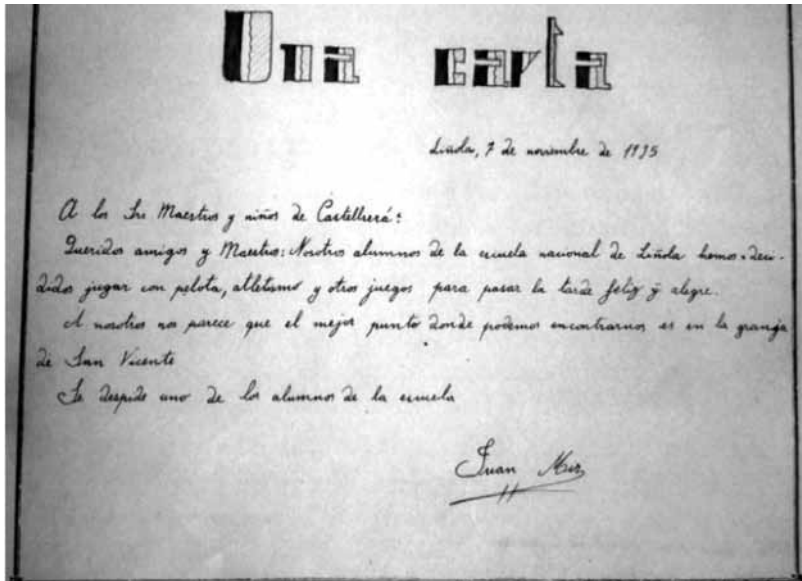 Una carta
Liñola, 7 de noviembre de 1935
A los Sre Maestros y niños de Castellserá:
Queridos amigos y Maestros: Nosotros alumnos de la escuela nacional de Liñola hemos deci-
didos jugar con pelota, atletismo y otros juegos para pasar la tarde feliz y alegre.
A nosotros nos parece que el mejor punto donde podemos encontrarnos es en la granja
de San Vicente
Se despide uno de los alumnos de la escuela
Juan Mir